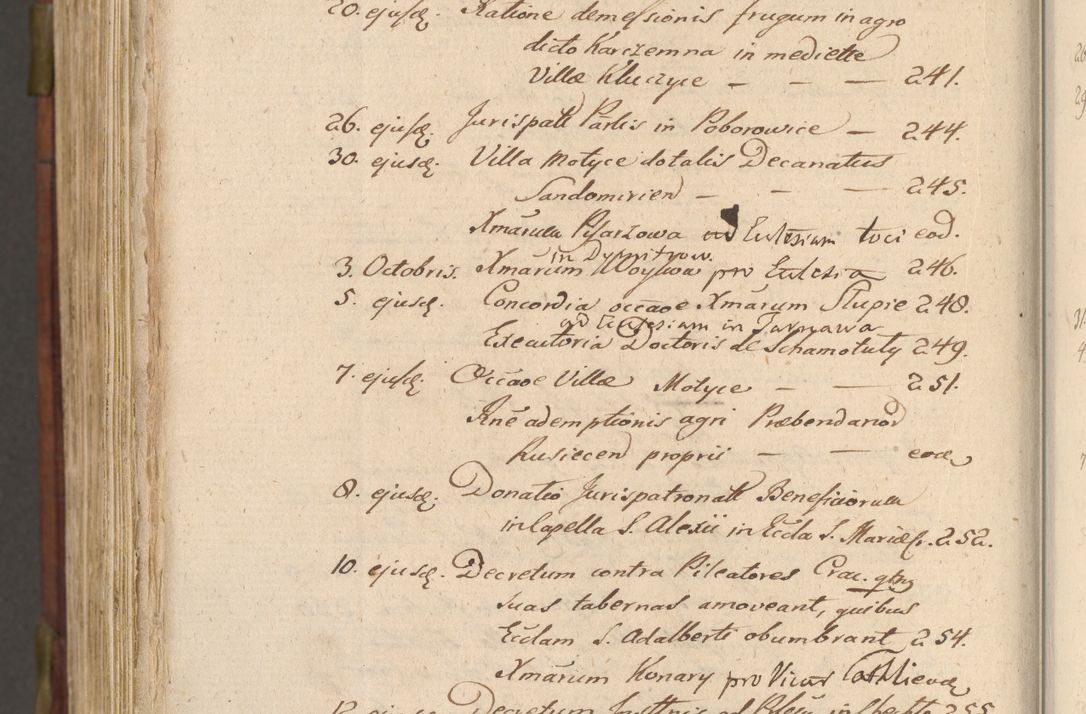 20. ejusdę. Ratione demessionis frugum in agro
dicto Karczemna in mediette
Villæ Kluczyce — — — 241.
26. ejusdę. Jurispatt Partis in Poborowice — 244.
30. ejusdę. Villa Motyce dotalis Decanatus
Sandomirien — — — 245.
Xmārum Pisarzowa ad Eulesium loci eod.
in Dypnitrow.
3. Octobris. Xmārum Woykow pro Eulesia 246.
5. ejusdę. Concordia occāoe Xmārum Slupie 248.
ad Eculesiam in Tarnawa
Executoria Doctoris de Schamotuly 249.
7. ejusdę. Occāoe Villæ Motyce — — 251.
Rnē ademptionis agri Præbendariod
Rusiecen proprii — — eodę
8. ejusdę. Donatio Jurispatronatt Beneficiorum
in Capella S. Alexii in Eccla S. Mariæ Cr. 252.
10. ejusdę. Decretum contra Pileatores Crac. qtnq
suas tabernas amoveant, quibus
Ecclam S. Adalberti obumbrant 254.
Xmārum Konary pro Vicus
Decretum ad in 255